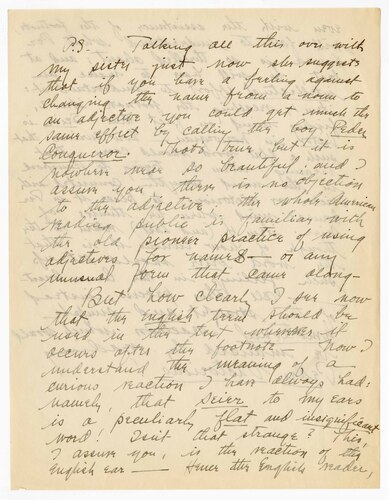 P.S. Talking all this over with
my sister just now she suggests
that if you have a feeling against
changing the name from a noun to
an adjective, you could get much the
same effect by calling the boy Peder
Conqueror. That's true but it is
nowhere near so beautiful: and I
assure you there is no objection
to the adjective. The whole American
reading public is familiar with
the old pioneer practice of using
adjectives for names — or any
unusual form that came along—
But how clearly I see now
that the English term should be
used in the text whenever it
occurs after the footnote — Now I
understand the meaning of a
curious reaction I have always had:
namely, that Seier to my ears
is a peculiarly flat and insignificant
word! Isn't that strange? This,
I assure you, is the reaction of the
English ear — Hence the English reader,